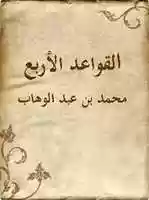 القواعد الأربع
محمد بن عبد الوهاب